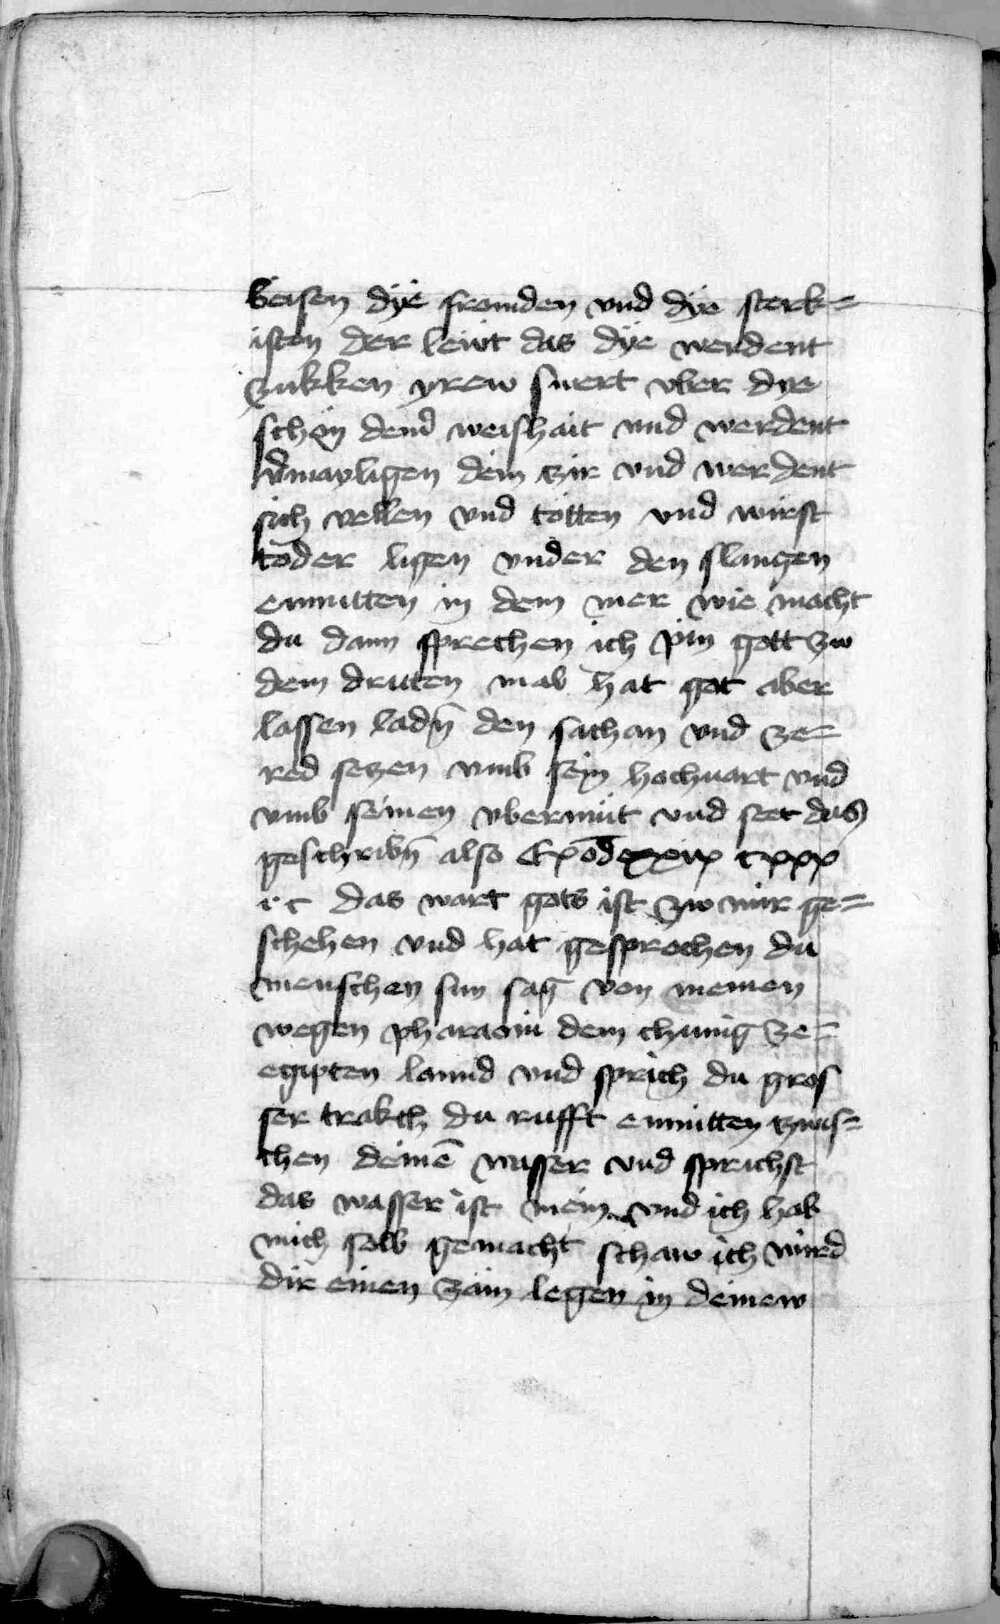 beisen dÿe fromden vnd dÿe sterk=
isten der lewt das dÿe werdent
zukken yrew swert vber dye
schön deinr weishait vnd werdent
vermayligen dein zir vnd werdent
sich vellen vnd tötten vnd wirst
toder ligen vnder den slangen
enmitten in dem mer wie macht
du dann sprechen ich pin gott zw
dem dritten mal hat got aber
lassen ladn̄ den sathan vnd ze=
red seczen vmb sein hochuart vnd
vmb seinen vbermüt vnd stet das
geschribn̄ also
das wart gots ist zw mir ge=
schehen vnd hat gesprochen du
menschen sun sag von meinen
wegen pharaoni dem chunig ze=
egipten lannd vnd sprich du gros
ser trakch du rufft enmitten zwis=
chen deinē wasser vnd sprichst
das wasser ist mein vnd ich hab
mich selb gemacht schaw ich wird
dir einen zam legen in deinew